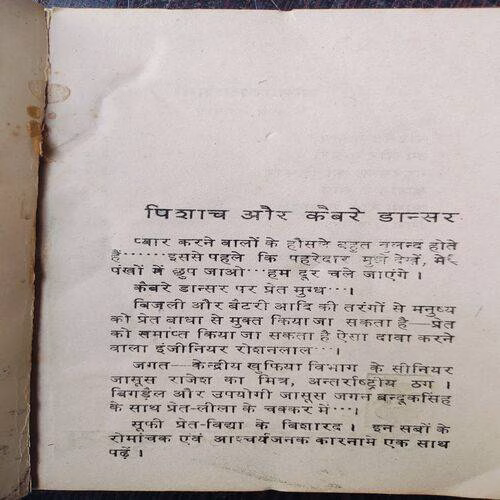 पिशाच और कैबरे डान्सर
प्यार करने वालों के हौसले बहुत बुलन्द होते
हैं······इससे पहले कि पहरेदार मुझे देखें, मेरे
पंखों में छुप जाओ···हम दूर चले जाएंगे ।
कैबरे डान्सर पर प्रेत मुग्ध···।
बिजली और बैटरी आदि की तरंगों से मनुष्य
को प्रेत बाधा से मुक्त किया जा सकता है—प्रेत
को समाप्त किया जा सकता है ऐसा दावा करने
वाला इंजीनियर रोशनलाल···।
जगत—केन्द्रीय खुफिया विभाग के सीनियर
जासूस राजेश का मित्र, अन्तर्राष्ट्रीय ठग ।
बिगड़ैल और उपयोगी जासूस जगन बन्दूकसिंह
के साथ प्रेत-लीला के चक्कर में···।
सूफी प्रेत-विद्या के विशारद । इन सबों के
रोमांचक एवं आश्चर्यजनक कारनामे एक साथ
पढ़ें ।